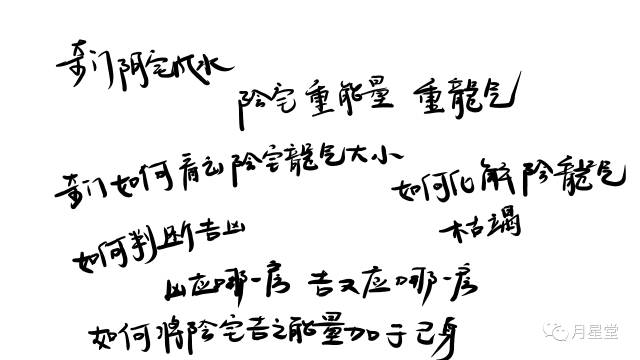 奇门阴宅风水
阴宅重能量 重龍气
奇门如何看出阴宅龍气大小
如何化解阴龍气
枯竭
如何判断吉凶
凶应哪一房 吉又应哪一房
如何将阴宅吉之能量加于己身
月星堂